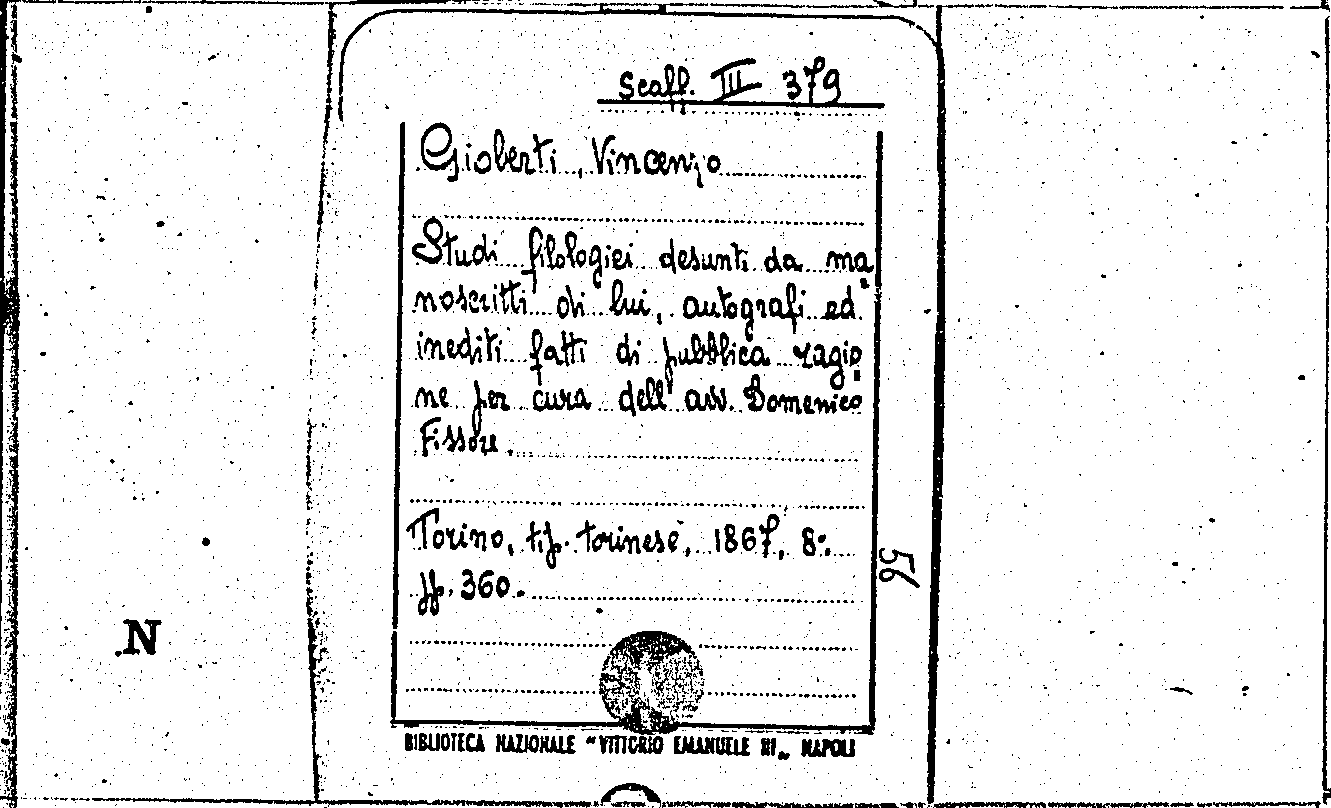 Scaff. III 379
Gioberti, Vincenzo
Studi filologici desunti da ma
noscritti di lui, autografi ed
inediti fatti di pubblica ragio
ne per cura dell'avv. Domenico
Fissore.
Torino, tip. torinese, 1867, 8°.
pp. 360.
56
N
BIBLIOTECA NAZIONALE "VITTORIO EMANUELE III„ NAPOLI